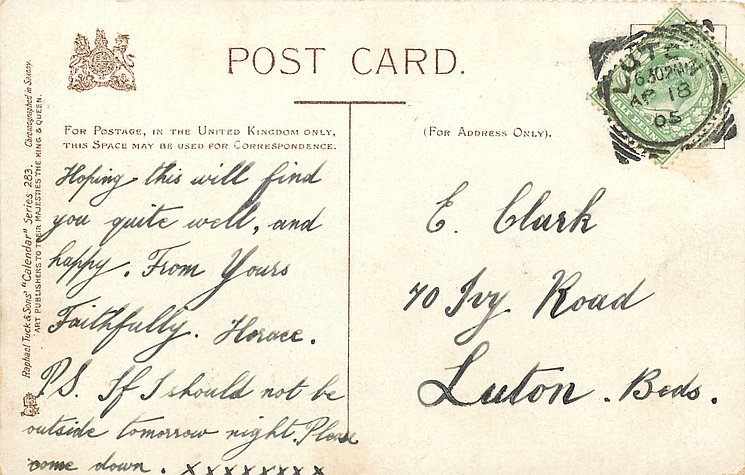 POST CARD.
FOR POSTAGE, IN THE UNITED KINGDOM ONLY,
THIS SPACE MAY BE USED FOR CORRESPONDENCE.
(FOR ADDRESS ONLY).
Raphael Tuck & Sons' "Calendar" Series 283. Chromographed in Saxony.
ART PUBLISHERS TO THEIR MAJESTIES THE KING & QUEEN.
LUTON
6.30PM
AP 18
05
HALF PENNY
Hoping this will find
you quite well, and
happy. From Yours
Faithfully. Horace.
P.S. If I should not be
outside tomorrow night. Please
come down. x x x x x x x x
E. Clark
70 Ivy Road
Luton. Beds.